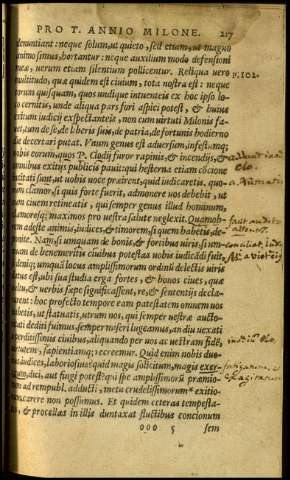 PRO T. ANNIO MILONE. 217
denuntiant: neque solum, ut quieto, sed etiam, ut magno
animo simus, hortantur: neque auxilium modo defensioni
meæ, uerum etiam silentium pollicentur. Reliqua uero
multitudo, quæ quidem est ciuium, tota nostra est: neque
eorum quisquam, quos undique intuentis ex hoc ipso lo-
co cernitis, unde aliqua pars fori aspici potest, & huius
exitum iudicij expectanteis, non cum uirtuti Milonis fa-
uet, tum de se, de liberis suis, de patria, de fortunis hodierno
die decertari putat. Vnum genus est aduersum, infestumq;
nobis eorum, quos P. Clodij furor rapinis, & incendijs, &
omnibus exitijs publicis pauit: qui hesterna etiam concione
incitati sunt, ut uobis uoce præirent, quid iudicaretis. quo-
rum clamor, si quis forte fuerit, admonere uos debebit, ut
eum ciuem retineatis, qui semper genus illud hominum,
clamoresq; maximos pro uestra salute neglexit. Quamob-
rem adeste animis, iudices, & timorem, si quem habetis, de-
ponite. Nam, si umquam de bonis, & fortibus uiris, si um-
quam de benemeritis ciuibus potestas uobis iudicandi fuit,
denique si umquam locus amplissimorum ordinum delectis uiris
datus est, ubi sua studia erga fortes, & bonos ciues, quæ
uultu, & uerbis sæpe significassent, re, & sententijs decla-
rarent: hoc profecto tempore eam potestatem omnem uos
habetis, ut statuatis, utrum nos, qui semper uestræ aucto-
ritati dediti fuimus, semper miseri lugeamus, an diu uexati
a perditissimis ciuibus, aliquando per uos ac uestram fidem,
uirtutem, sapientiamq; recreemur. Quid enim nobis duo-
bus iudices, laboriosius? quid magis solicitum, magis exer-
citum, dici, aut fingi potest? qui spe amplissimorum præmiorum
ad rempubl. adducti, metu crudelissimorum exitio-
rum carere non possumus. Et quidem ceteras tempesta-
tes, & procellas in illis duntaxat fluctibus concionum
ooo 5 sem
p. 102.